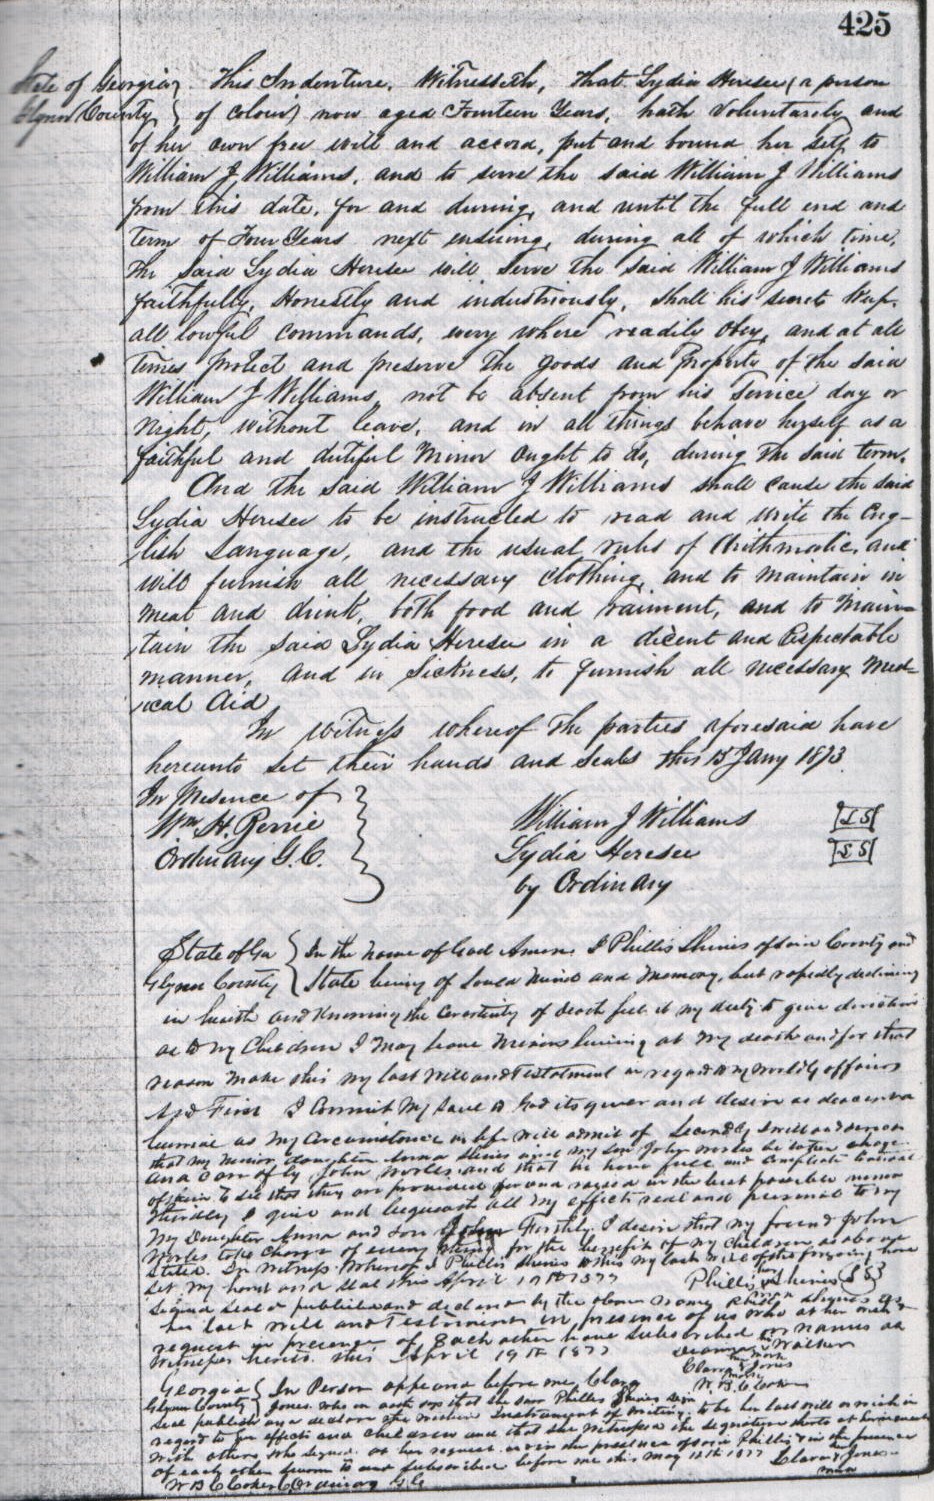 425
State of Georgia } This Indenture, Witnesseth, That Lydia Heresee (a person
Glynn County } of colour) now aged Fourteen Years, hath Voluntarily and
of her own free will and accord, put and bound her self, to
William J Williams, and to serve the said William J Williams
from this date, for and during, and until the full end and
Term of Four Years next ensuing, during all of which time,
The said Lydia Heresee will serve the said William J Williams
faithfully, Honestly and industriously, shall his secrets keep,
all lawful commands, every where readily obey, and at all
times protect and preserve the goods and Property of the said
William J Williams, not be absent from his Service day or
Night, without leave, and in all things behave herself as a
faithful and dutiful Minor ought to do, during the said term.
And the said William J Williams shall cause the said
Lydia Heresee to be instructed to read and write the Eng-
lish Language, and the usual rules of Arithmetic, and
will furnish all necessary clothing, and to maintain in
meat and drink, both food and raiment, and to main-
tain the said Lydia Heresee in a decent and Respectable
manner, and in Sickness, to furnish all necessary Med-
ical Aid
In witness whereof the parties aforesaid have
hereunto set their hands and seals this 15 Jany 1873
In Presence of
Wm H. Perrie
Ordinary G.C.
William J Williams LS
Lydia Heresee LS
by Ordinary
State of Ga } In the name of God Amen. I Phillis Shines of said County and
Glynn County } State being of sound Mind and Memory, but rapidly declining
in health and Knowing the Certainty of Death feel it my duty to give directions
as to my Children I may leave Minors living at my death and for that
reason make this my last Will and Testatment in regard to my worldly affairs
And First I Commit My Soul to God its giver and desire a decent
burial as my Circumstance in life will admit of Secondly I will and
that my minor daughter Anna Shines and my Son John be taken charge
and care of by John and that he have full and complete control
of them to see that they are provided for and raised in the best possible manner
Thirdly I give and bequeath all my effects real and personal to my
My Daughter Anna and Son John Forthly I desire that my friend John
take Charge of every thing for the benefit of my children as above
stated. In witness Whereof I Phillis Shines to this my last will of the forgoing have
set my hand and seal this April 19th 1877 Phillis Shines LS
Signed seal & published and declared by the above named Phillis Shines as
her last will and Testament in presence of us who at her
request in presence of Each other have subscribed our names as
Witnesses hereto this April 19th 1877
Walker
Clara Jones
W. B. C. Coker
Georgia } In Person appeared before me, Clara
Glynn County } Jones who on oath says that she saw Phillis Shines sign
seal publish and declare the within Instrument of writing to be her last will
regard to her effects and children and that she witnessed the signature at her
with others who signed at her request and in the presence of said Phillis & in the presence
of each other Sworn to and subscribed before me this May 12th 1877
Clara Jones
mark
W B C Coker Ordinary G C